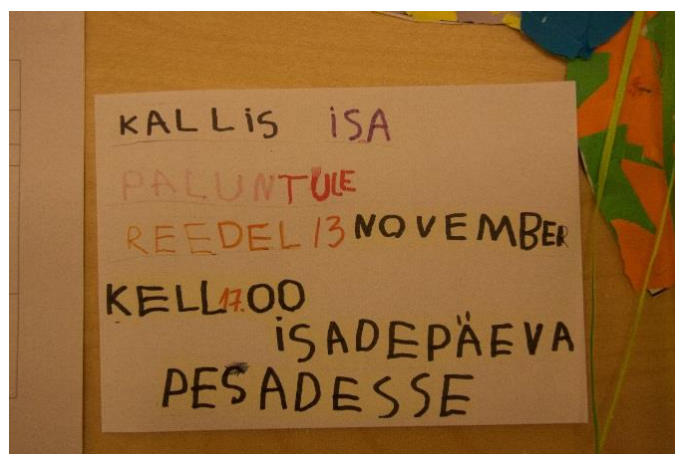 KALLiS iSA
PALUN TULE
REEDEL 13 NOVEMBER
KELL 17.00
iSADEPÄEVA
PESADESSE